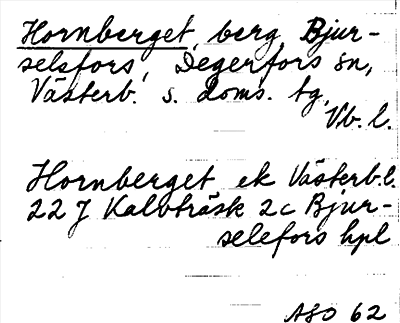 Hornberget, berg Bjur-
selsfors, Degerfors sn,
Västerb. s. doms. tg,
Vb. l.
Hornberget ek Västerb.l.
22 J Kalvträsk 2c Bjur-
selefors hpl
ASO 62